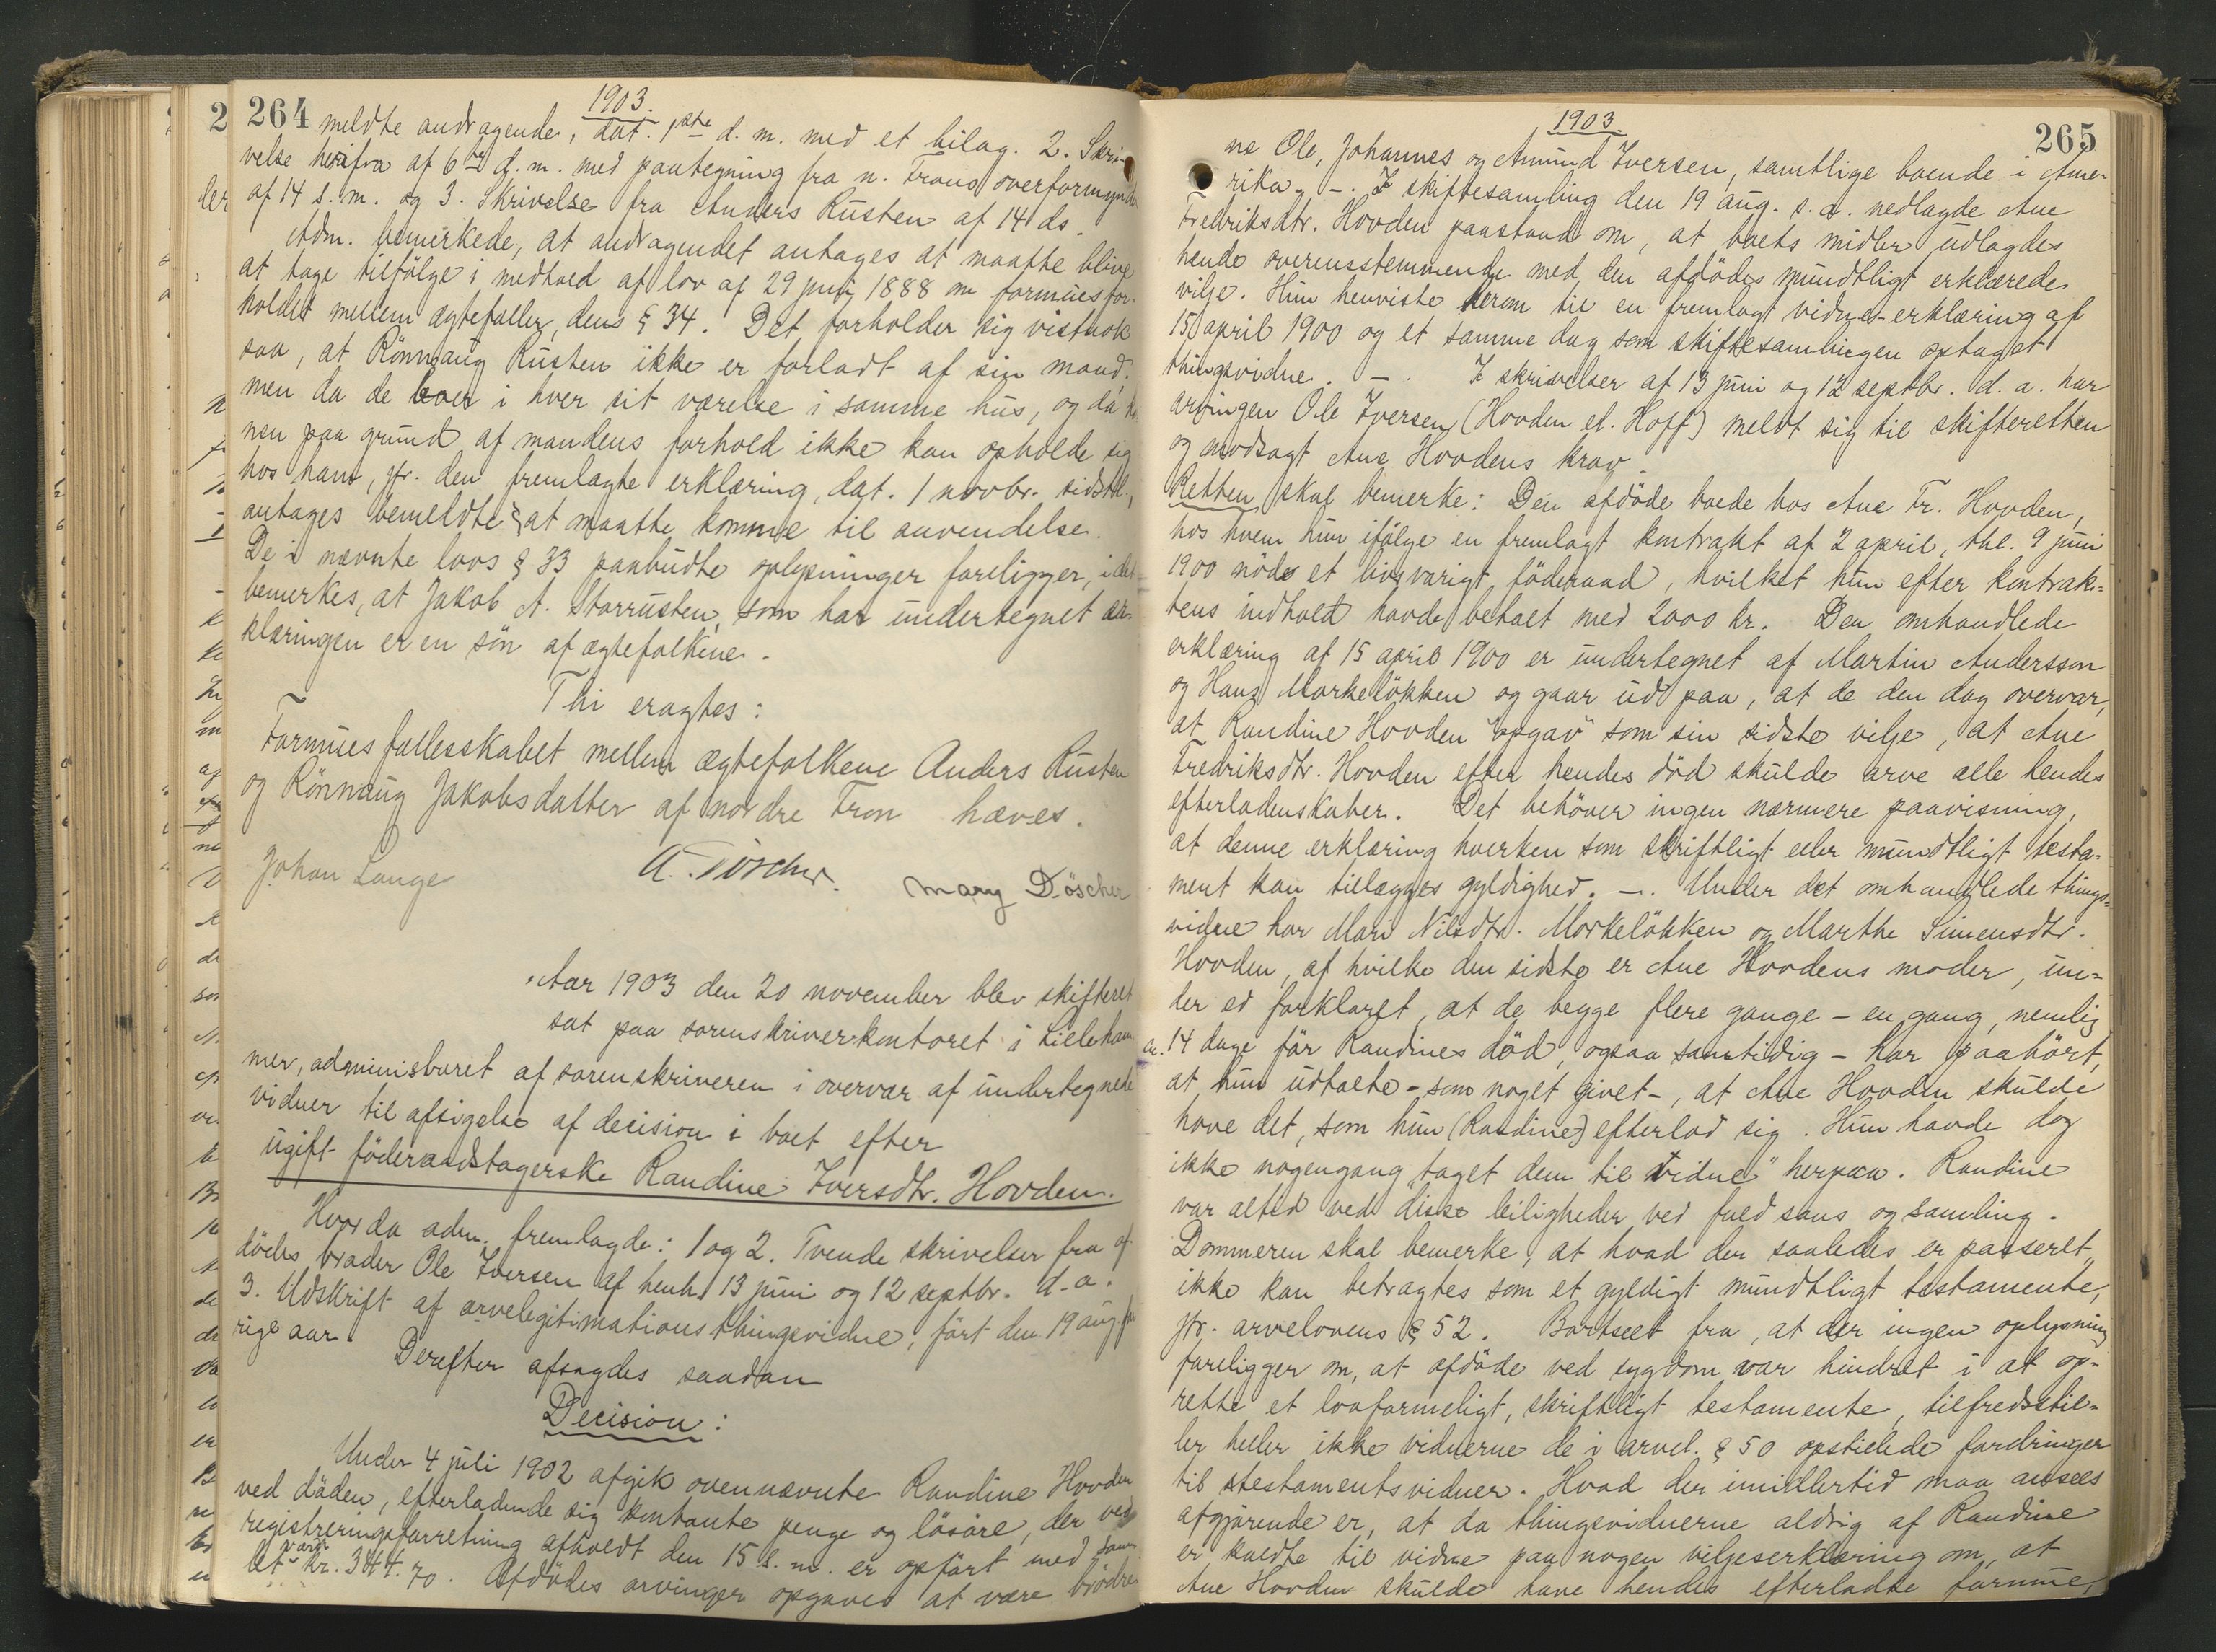 264
1903.
meldte andragende, dat. 1ste d. m. med et bilag. 2. Skri-
velse herifra af 6te d. m. med paategning fra n. Frons overformynder
af 14 s. m. og 3. Skrivelse fra Anders Rusten af 14 ds.
Adm. bemerkede, at andragendet antages at maatte blive
at tage tilfølge i medhold af lov af 29 juni 1888 om formuesfor-
holdet mellem ægtefæller, dens § 34. Det forholder sig vistnok
saa, at Rönnaug Rusten ikke er forladt af sin mand;
men da de boer i hver sit værelse i samme hus, og da
nen paa grund af mandens forhold ikke kan opholde sig
hos ham, jfr. den fremlagte erklæring, dat. 1 novbr. sidstl.,
antages bemeldte § at maatte komme til anvendelse.
De i nævnte lovs § 33 paabudte oplysninger foreligger, idet
bemerkes, at Jakob A. Storrusten, som har undertegnet er-
klæringen er en sön af ægtefolkene.
Thi eragtes:
Formuesfællesskabet mellem ægtefolkene Anders Rusten
og Rönnaug Jakobsdatter af nordre Fron hæves.
Johan Lange A. Döscher. Mary Döscher
Aar 1903 den 20 november blev skifteret
sat paa sorenskriverkontoret i Lieleham-
mer, administreret af sorenskriveren i overvær af undertegnede
vidner til afsigelse af decision i boet efter
ugift föderaadstagerske Randine Iversdtr. Hovden.
Hvorda adm. fremlagde: 1 og 2. Tvende skrivelser fra af-
dödes broder Ole Iversen af henh. 13 juni og 12 septbr. d. a.
3. Udskrift af arvelegitimationsthingsvidne, fört den 19 aug. for-
rige aar.
Derefter afsagdes saadan
Decision:
Under 4 juli 1902 afgik ovennævnte Randine Hovden
ved döden, efterladende sig kontante penge og lösöre, der ved
registreringsforretning afholdt den 15 s. m. er opfört med sam-
let værdi kr. 344.70. Afdödes arvinger opgaves at være brödre-
265
1903.
ne Ole, Johannes og Amund Iversen, samtlige boende i Ame-
rika. -. I skiftesamling den 19 aug. s. a. nedlagde Ane
Fredriksdtr. Hovden paastand om, at boets midler udlagdes
hende overensstemmende med den afdödes mundtligt erklærede
vilje. Hun henviste herom til en fremlagt vidne-erklæring af
15 april 1900 og et samme dag som skiftesamlingen optaget
thingsvidne. -. I skrivelser af 13 juni og 12 septbr. d. a. har
arvingen Ole Iversen (Hovden el. Hoff) meldt sig til skifteretten
og modsagt Ane Hovdens krav.
Retten skal bemerke: Den afdöde boede hos Ane Fr. Hovden,
hos hvem hun ifölge en fremlagt kontrakt af 2 april, thl. 9 juni
1900 nöd et livsvarigt föderaad, hvilket hun efter kontrak-
tens indhold havde betalt med 2000 kr. Den omhandlede
erklæring af 15 april 1900 er undertegnet af Martin Andersson
og Hans Morkelökken og gaar ud paa, at de den dag overvar,
at Randine Hovden "opgav" som sin sidste vilje, at Ane
Fredriksdtr. Hovden efter hendes död skulde arve alle hendes
efterladenskaber. Det behöver ingen nærmere paavisning,
at denne erklæring hverken som skriftligt eller mundtligt testa-
ment kan tillægges gyldighed. -. Under det omhandlede things-
vidne har Mari Nilsdtr. Morkelökken og Marthe Simensdtr.
Hovden, af hvilke den sidste er Ane Hovdens moder, un-
der ed forklaret, at de begge flere gange - en gang, nemlig
ca. 14 dage för Randines död, ogsaa samtidig - har paahört,
at hun udtalte - som noget givet -, at Ane Hovden skulde
have det, som hun (Randine) efterlod sig. Hun havde dog
ikke nogengang taget dem til "vidne" herpaa. Randine
var altid ved disse leiligheder ved fuld sans og samling.
Dommeren skal bemerke, at hvad der saaledes er passeret,
ikke kan betragtes som et gyldigt mundtligt testamente,
jfr. arvelovens § 52. Bortseet fra, at der ingen oplysning
foreligger om, at afdöde ved sygdom var hindret i at op-
rette et lovformeligt, skriftligt testamente, tilfredsstil-
ler heller ikke vidnerne de i arvel. § 50 opstillede fordringer
til testamentsvidner. Hvad der imidlertid maa ansees
afgjörende er, at da thingsvidnerne aldrig af Randine
er kaldte til vidne paa nogen viljeserklæring om, at
Ane Hovden skulde have hendes efterladte formue,